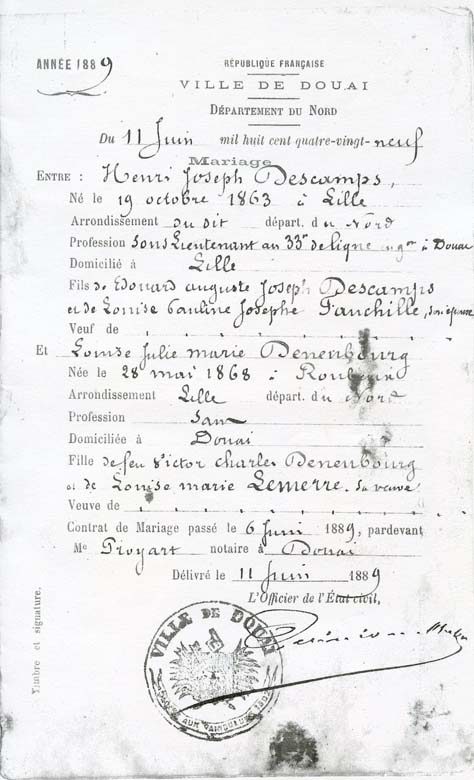 ANNÉE 1889
RÉPUBLIQUE FRANÇAISE
VILLE DE DOUAI
DÉPARTEMENT DU NORD
Du 11 Juin mil huit cent quatre-vingt-neuf
Mariage
ENTRE : Henri Joseph Descamps,
Né le 19 octobre 1863 à Lille
Arrondissement du dit départ. du Nord
Profession Sous Lieutenant au 33me de ligne en gon à Douai
Domicilié à Lille
Fils de Edouard auguste Joseph Descamps
et de Louise Pauline Josephe Fauchille, son épouse
Veuf de
ET Louise Julie marie Denenbourg
Née le 28 mai 1868 à Roubaix
Arrondissement Lille départ. du Nord
Profession sans
Domiciliée à Douai
Fille de feu Victor Charles Denenbourg
et de Louise marie Lemerre. sa veuve
Veuve de
Contrat de Mariage passé le 6 Juin 1889, pardevant
Me Proyart notaire à Douai
Délivré le 11 Juin 1889
L'Officier de l'État civil,
Timbre et signature.
VILLE DE DOUAI